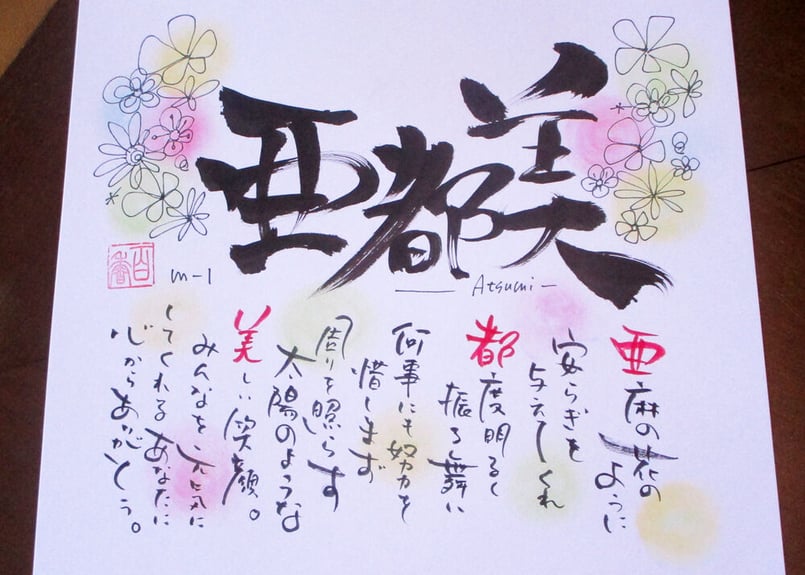 亜都美
Atsumi
m-1
亜麻の花の
ように
安らぎを
与えてくれ
都度明るく
振る舞い
何事にも努力を
惜します
周りを照らす
太陽のような
美しい笑顔。
みんなを元気に
してくれるあなたに
心からありがとう。